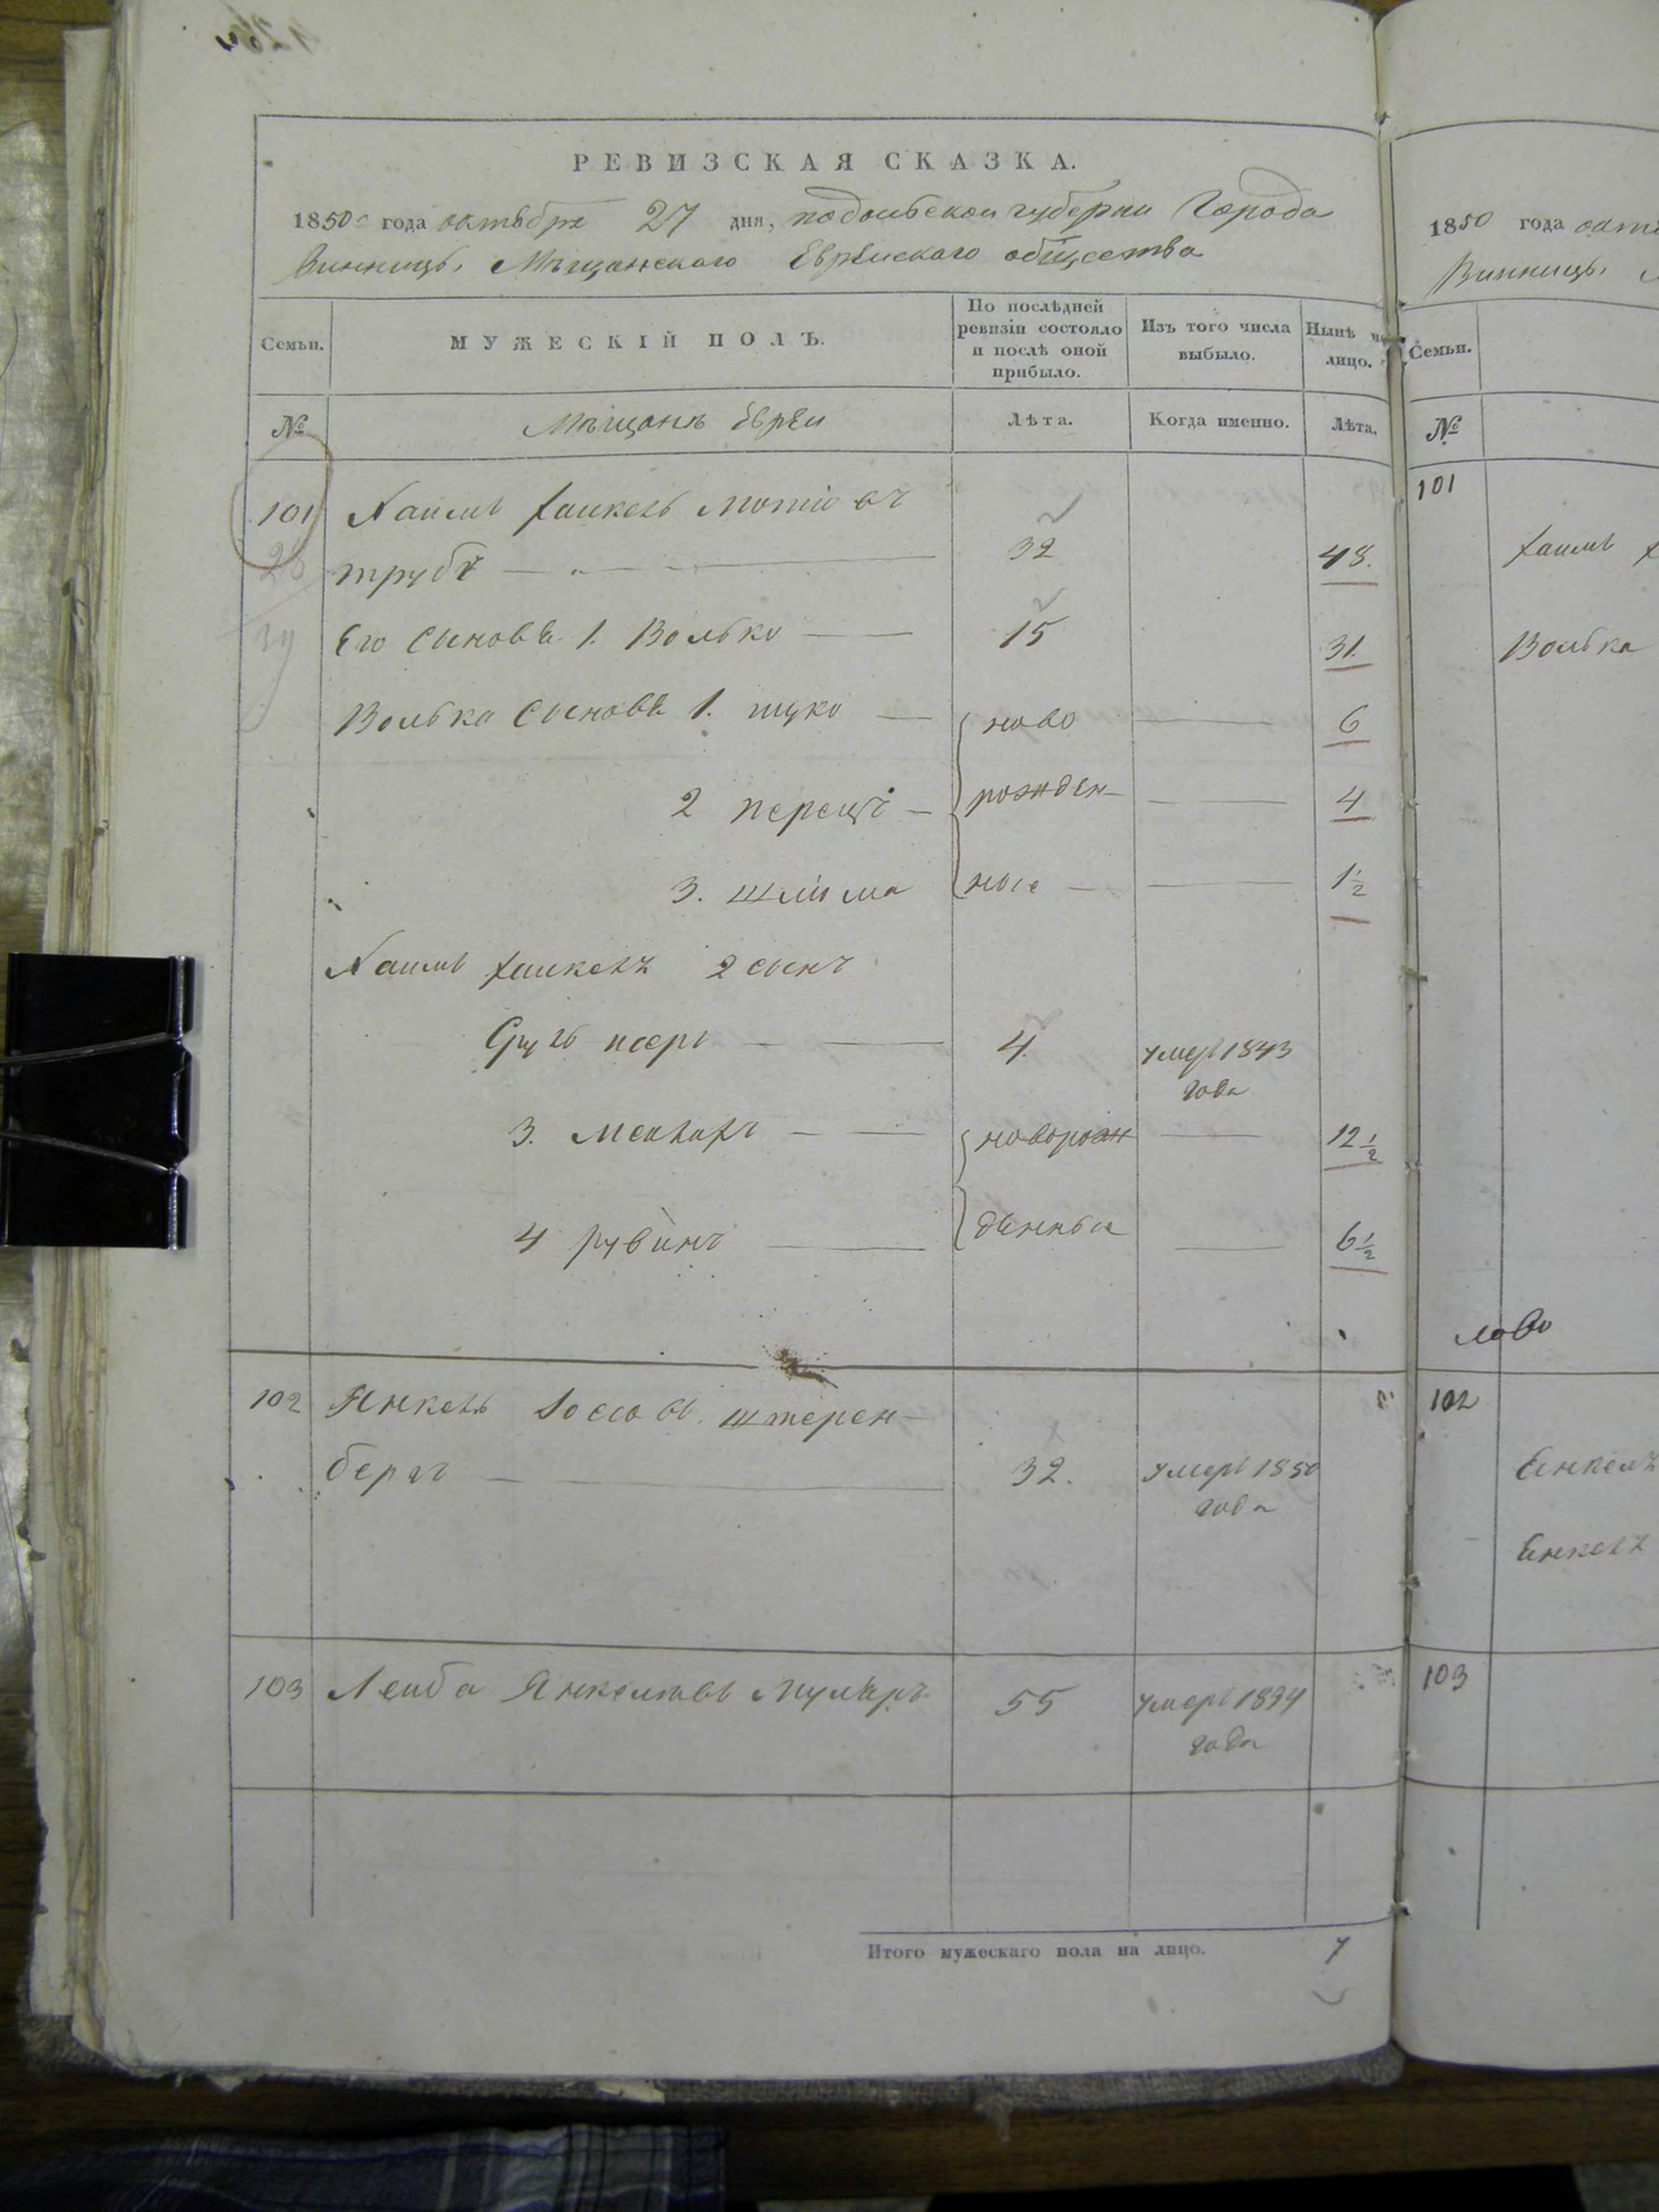 РЕВИЗСКАЯ СКАЗКА.
1850 года октября 27 дня, подольской губернии Города
Винницы Мещанского Еврейского общества
Семьи.
МУЖЕСКІЙ ПОЛЪ.
По послѣдней ревизіи состояло и послѣ оной прибыло.
Изъ того числа выбыло.
Нынѣ на лицо.
№
Мещанъ Евреи
Лѣта.
Когда именно.
Лѣта.
101 Хаимъ Хаикель
трубъ 32 48.
Его Сыновья 1. Волько 15 31.
Волька Сыновья 1. шуко ново 6
2 перецъ рожден 4
3. шліома ные 1½
Хаимъ Хаикель 2 сынъ
Сруль 4. умеръ 1843
года
3. новорож 12½
4 рувинъ денные 6½
102 Янкель Іосіовъ штерен
бергъ 32. умеръ 1850
года
103 Лейба Янкелювъ Муляръ 55 умеръ 1834
года
Итого мужескаго пола на лицо. 7
1850 года окт
Винницы
Семьи.
№
101
Хаимъ
Волька
102
Енкель
Енкель
103